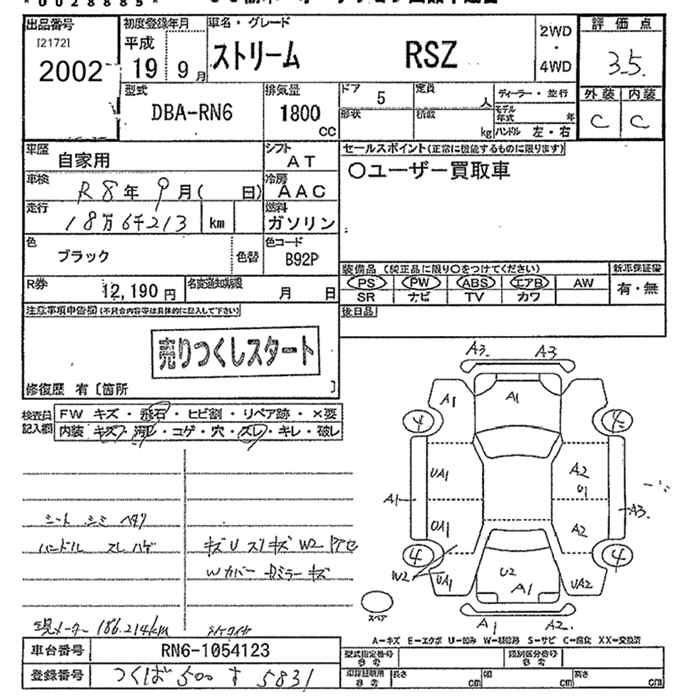 *0028885*
出品番号 初度登録年月 車名・グレード 評価点
[2172]
2002
平成
19 9月
ストリーム RSZ
2WD
・
4WD
3.5
型式 DBA-RN6
排気量 1800 CC
ドア 5 定員 人
形状 積載 kg
ディーラー・並行
モデル年式 年
ハンドル 左・右
外装 内装
C C
車歴 自家用
シフト AT
セールスポイント(正常に機能するものに限ります)
○ユーザー買取車
車検 R8年9月( 日)
冷房 AAC
走行 18万6千213 km
燃料 ガソリン
色 ブラック 色替
色コード B92P
装備品 (純正品に限り○をつけてください) 新車保証書
PS PW ABS エアB AW 有・無
SR ナビ TV カワ
R券 12,190円 名変通知期限 月 日
後日品
注意事項申告欄(不具合内容等は具体的に記入して下さい)
売りつくしスタート
修復歴 有 [箇所
検査員記入欄
FW キズ・飛石・ヒビ割・リペア跡・×要
内装 キズ・汚レ・コゲ・穴・スレ・キレ・破レ
シート シミ ヘタリ
ハンドル スレ ハゲ
現メーター 186.214km
A3. A3
A1 A1
4 4
UA1 A2
U1
A1 A3.
UA1 A2
4 4
W2 UA1 U2 A1 UA2
A1 A2.
スペア
A-キズ E-エクボ U-凹み W-補修跡 S-サビ C-腐食 XX-交換済
車台番号 RN6-1054123
型式指定番号 類別区分番号
参考 参考
登録番号 つくば 500 す 5831
車庫証明用 参考 長さ cm 幅 cm 高さ cm